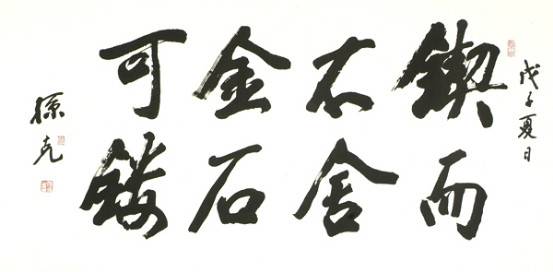 戊子夏日
锲而
不舍
金石
可镂
孙克